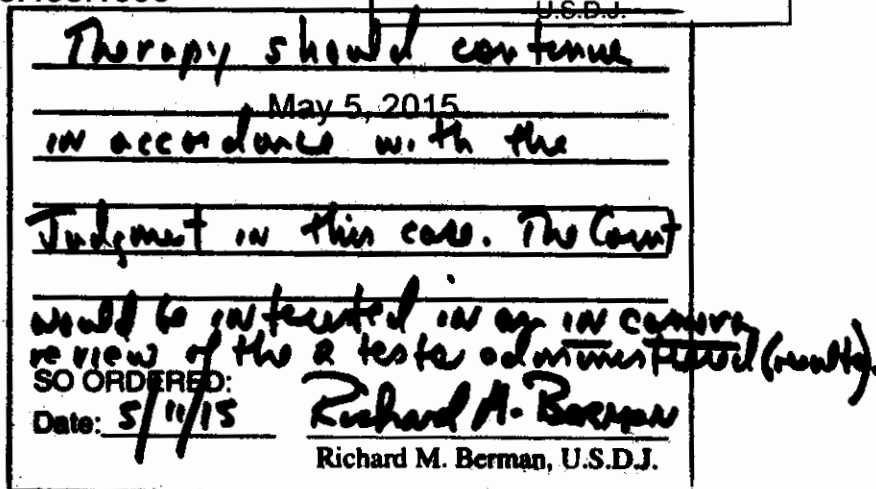 U.S.D.J.
Therapy should continue
May 5, 2015
in accordance with the
Judgment in this case. The Court
would be interested in an in camera
review of the 2 tests administered (results).
SO ORDERED:
Date: 5/11/15 Richard M. Berman
Richard M. Berman, U.S.D.J.